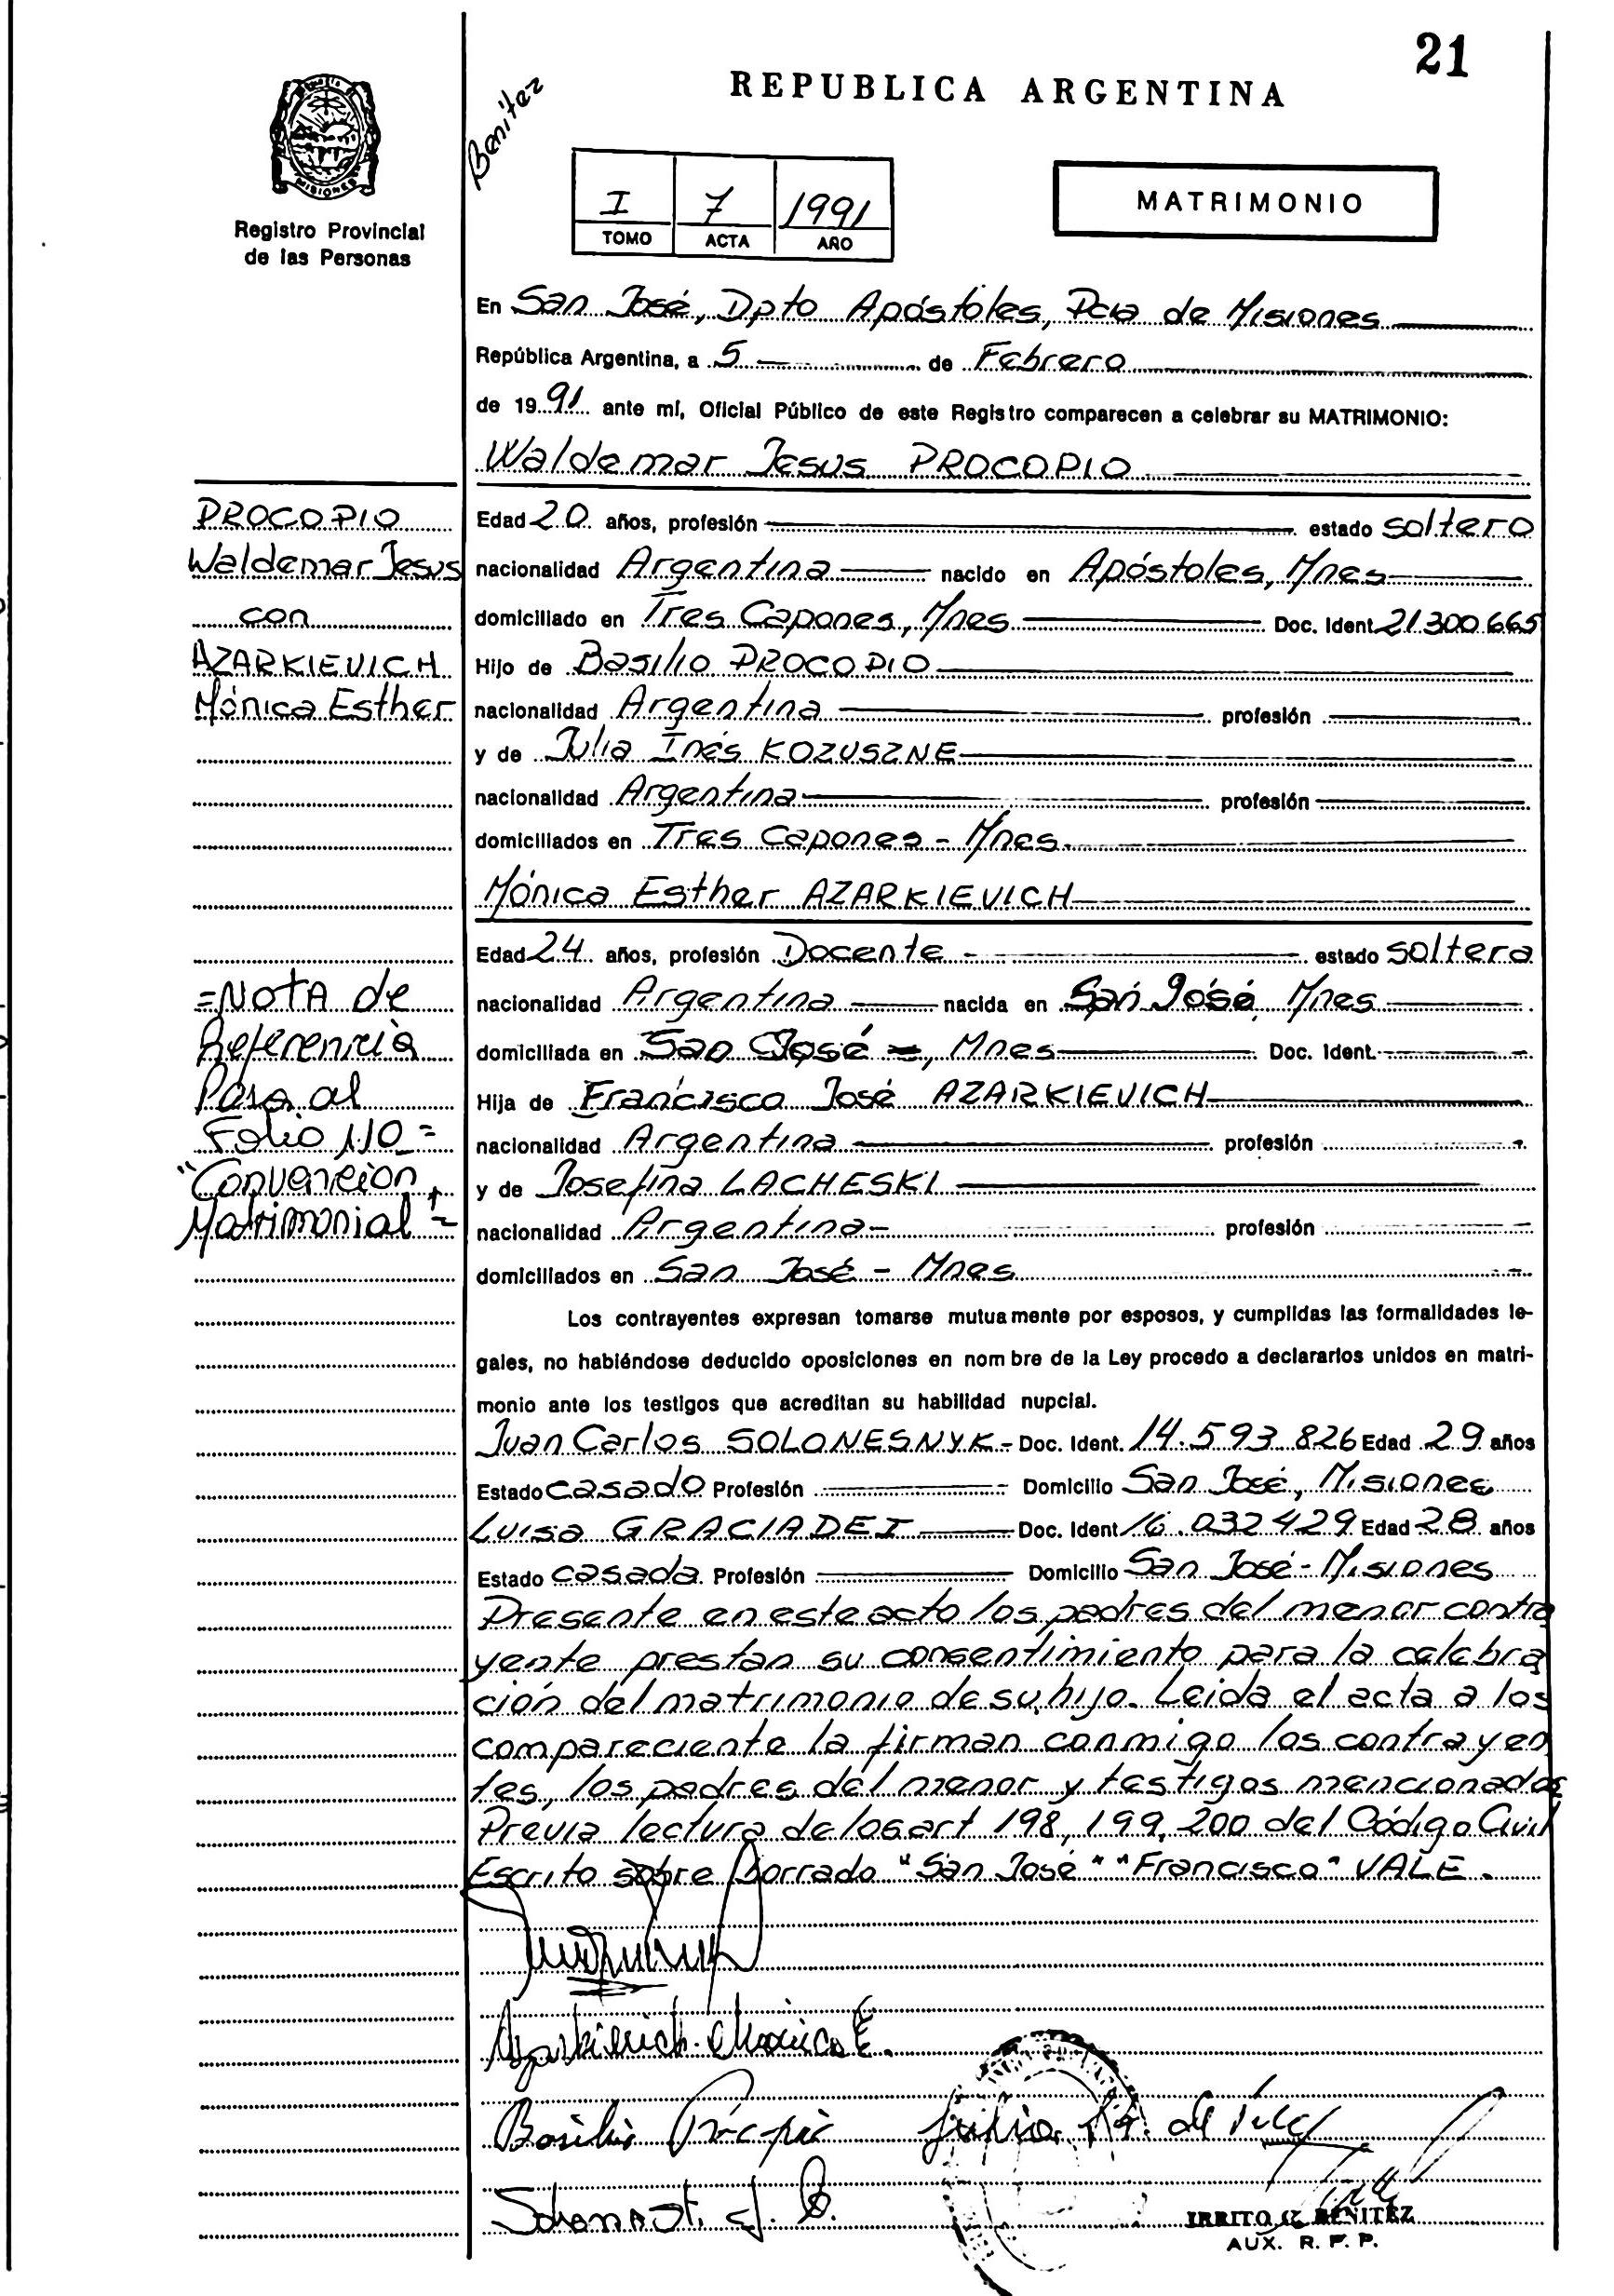 21
REPUBLICA ARGENTINA
Benitez
MISIONES
Registro Provincial
de las Personas
I 7 1991
TOMO ACTA AÑO
MATRIMONIO
En San José, Dpto Apóstoles, Pcia de Misiones
República Argentina, a 5 de Febrero
de 1991 ante mí, Oficial Público de este Registro comparecen a celebrar su MATRIMONIO:
Waldemar Jesus PROCOPIO
PROCOPIO
Waldemar Jesus
con
AZARKIEVICH
Mónica Esther
Edad 20 años, profesión estado soltero
nacionalidad Argentina nacido en Apóstoles, Mnes
domiciliado en Tres Capones, Mnes Doc. Ident. 21300665
Hijo de Basilio PROCOPIO
nacionalidad Argentina profesión
y de Julia Inés KOZUSZNE
nacionalidad Argentina profesión
domiciliados en Tres Capones - Mnes
Mónica Esther AZARKIEVICH
=NOTA de
Referencia
Pasa al
Folio 110=
"Convencion
Matrimonial"=
Edad 24 años, profesión Docente - estado soltera
nacionalidad Argentina nacida en San José, Mnes
domiciliada en San José -, Mnes Doc. Ident.
Hija de Francisco José AZARKIEVICH
nacionalidad Argentina profesión
y de Josefina LACHESKI
nacionalidad Argentina- profesión
domiciliados en San José - Mnes
Los contrayentes expresan tomarse mutuamente por esposos, y cumplidas las formalidades le-
gales, no habiéndose deducido oposiciones en nombre de la Ley procedo a declararlos unidos en matri-
monio ante los testigos que acreditan su habilidad nupcial.
Juan Carlos SOLONESNYK - Doc. Ident. 14.593.826 Edad 29 años
Estado casado Profesión Domicilio San José, Misiones
Luisa GRACIADEI Doc. Ident 16.032429 Edad 28 años
Estado casada Profesión Domicilio San José - Misiones
Presente en este acto los padres del menor contra
yente prestan su consentimiento para la celebra
ción del matrimonio de su hijo. Leida el acta a los
compareciente la firman conmigo los contrayen
tes, los padres del menor y testigos mencionados
Previa lectura de los art 198, 199, 200 del Código Civil
Escrito sobre borrado "San José" "Francisco" VALE.
Azarkievich Mónica E.
Basilio Procopio Julia
BENITEZ
AUX. R. P. P.